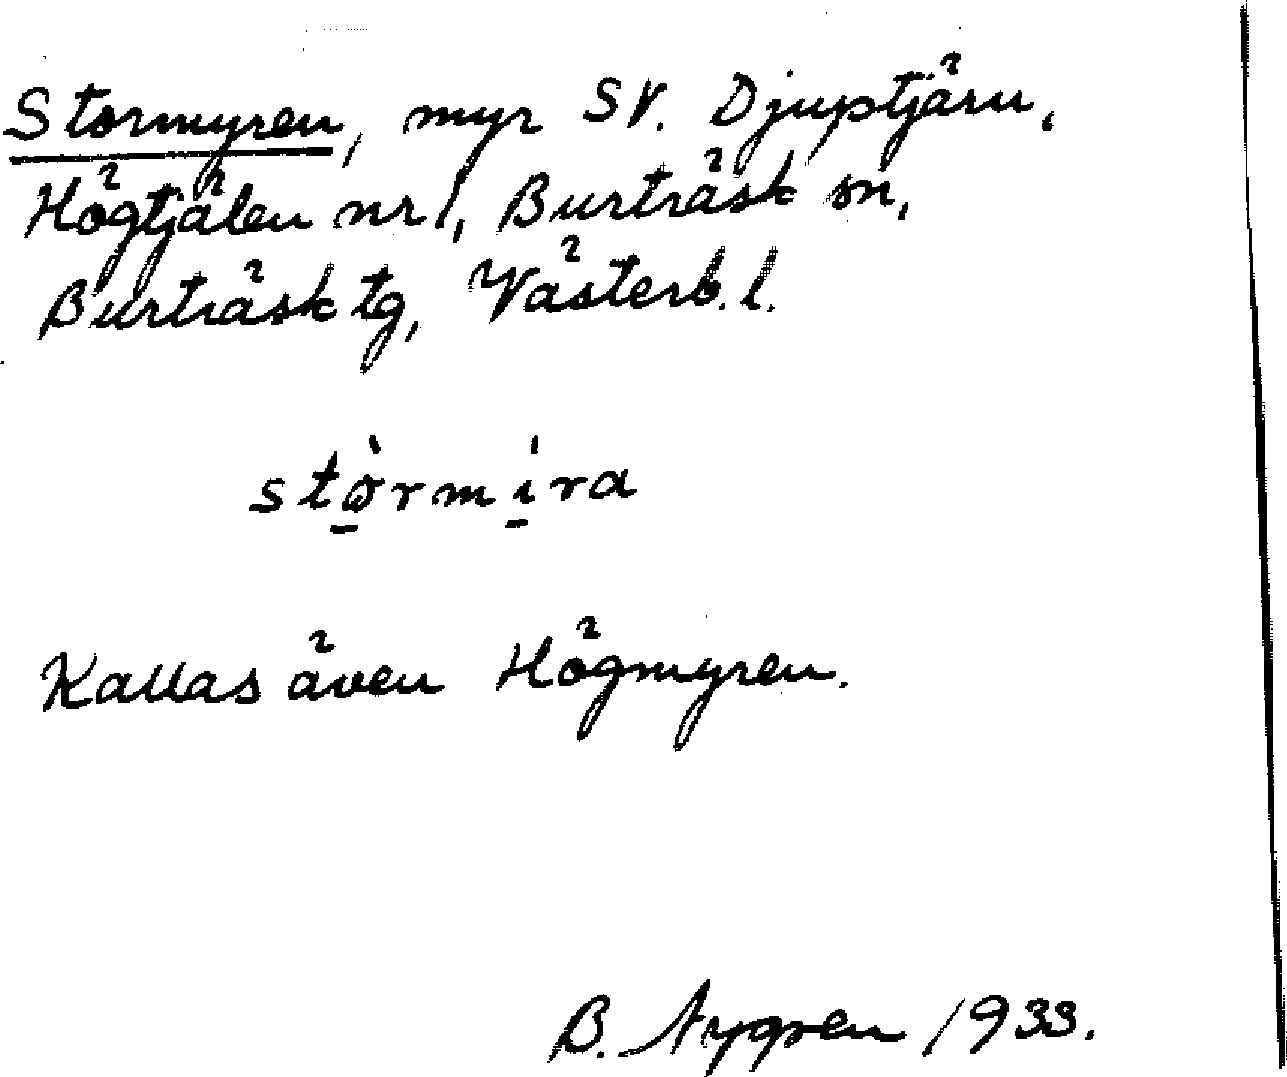 Stormyren, myr SV. Djuptjärn,
Högtjälen nr 1, Burträsk sn,
Burträsk tg, Västerb. l.
stò̱rmi̱ra
Kallas även Högmyren.
B. Nygren 1933.